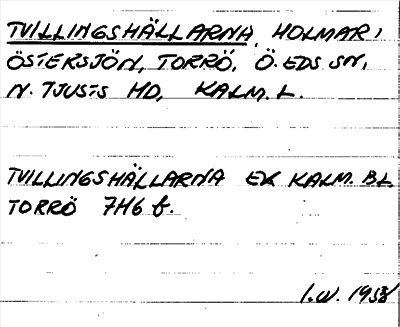 TVILLINGSHÄLLARNA, HOLMAR I
ÖSTERSJÖN, TORRÖ, Ö. EDS SN,
N. TJUSTS HD, KALM. L.
TVILLINGSHÄLLARNA EK KALM. BL
TORRÖ 7H6 f.
I.W. 1958